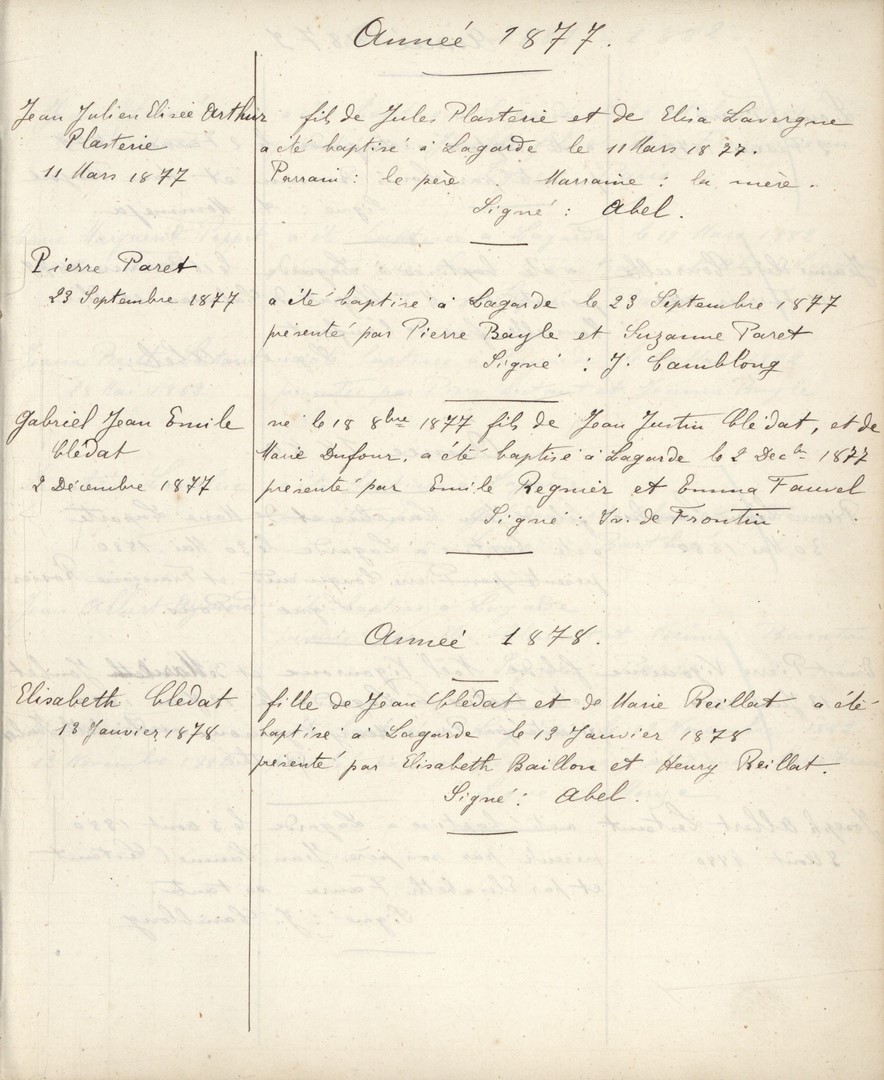 Anneé 1877.
Jean Julien Elisée Arthur
Plasterie
11 Mars 1877
fils de Jules Plasterie et de Elisa Lavergne
a été baptisé à Lagarde le 11 Mars 1877.
Parrain : le père. Marraine : la mère.
Signé : Abel.
Pierre Paret
23 Septembre 1877
a été baptisé à Lagarde le 23 Septembre 1877
présenté par Pierre Bayle et Suzanne Paret
Signé : J. Camblong
Gabriel Jean Emile
Clédat
2 Décembre 1877
né le 18 8bre 1877 fils de Jean Justin Clédat, et de
Marie Dufour, a été baptisé à Lagarde le 2 Decbre 1877
présenté par Emile Regnier et Emma Fauvel
Signé : de Frontin
Anneé 1878.
Elisabeth Clédat
13 Janvier 1878
fille de Jean Clédat et de Marie Reillat a été
baptisé à Lagarde le 13 Janvier 1878
présenté par Elisabeth Baillon et Henry Reillat.
Signé : Abel.